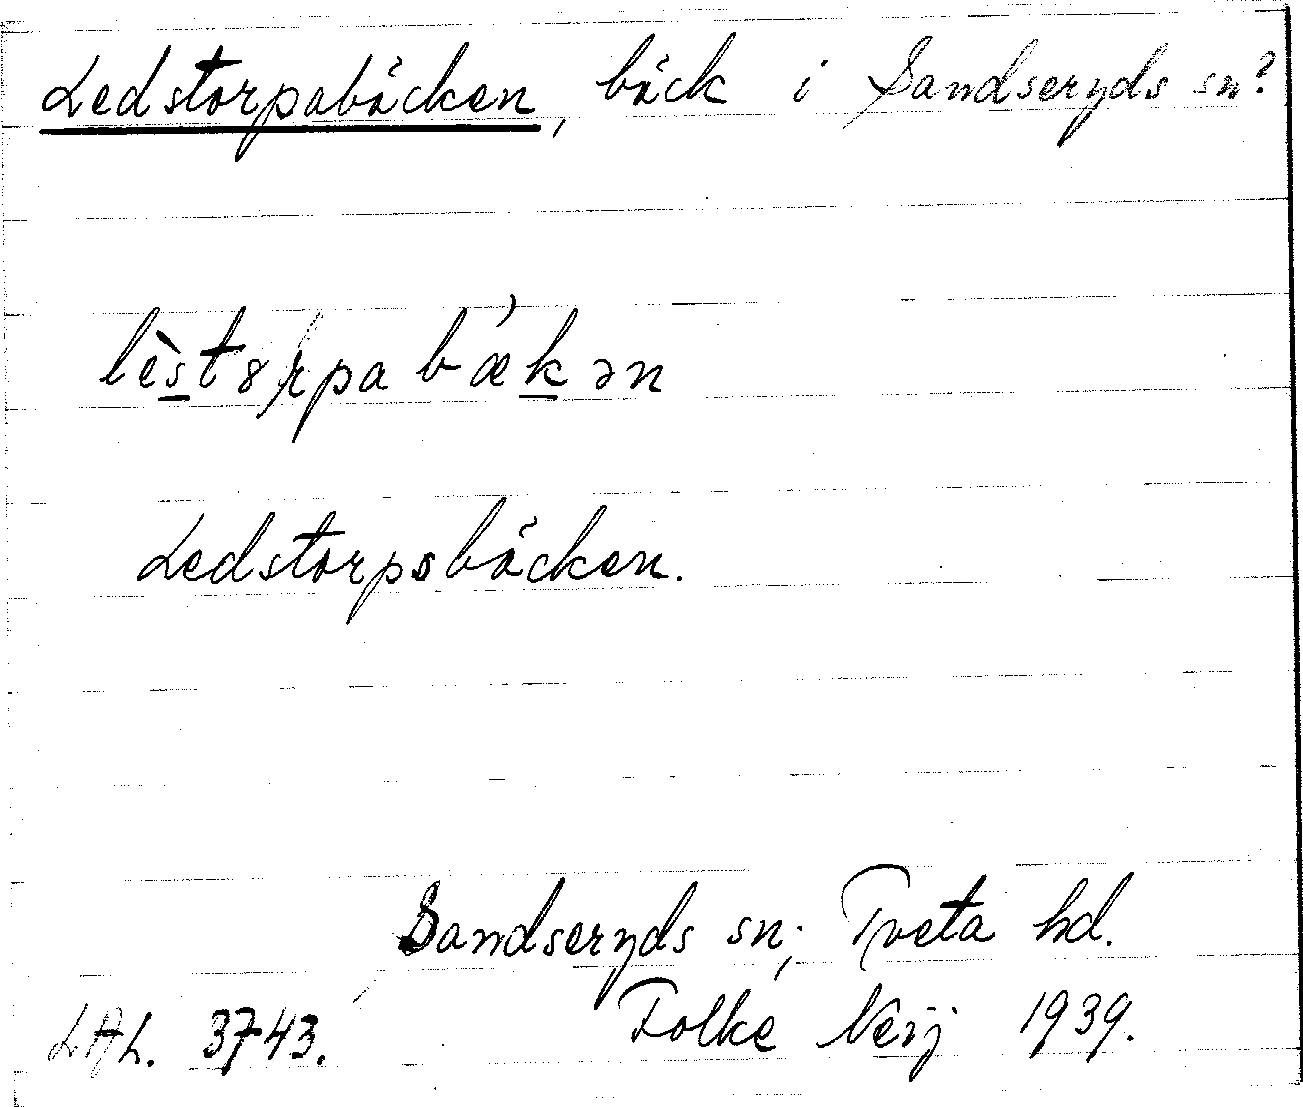 Ledstorpabäcken, bäck i Sandseryds sn?
lèstɘrpabǽkən
Ledstorpsbäcken.
Sandseryds sn; Tveta hd.
LAL. 3743. Folke Neij 1939.